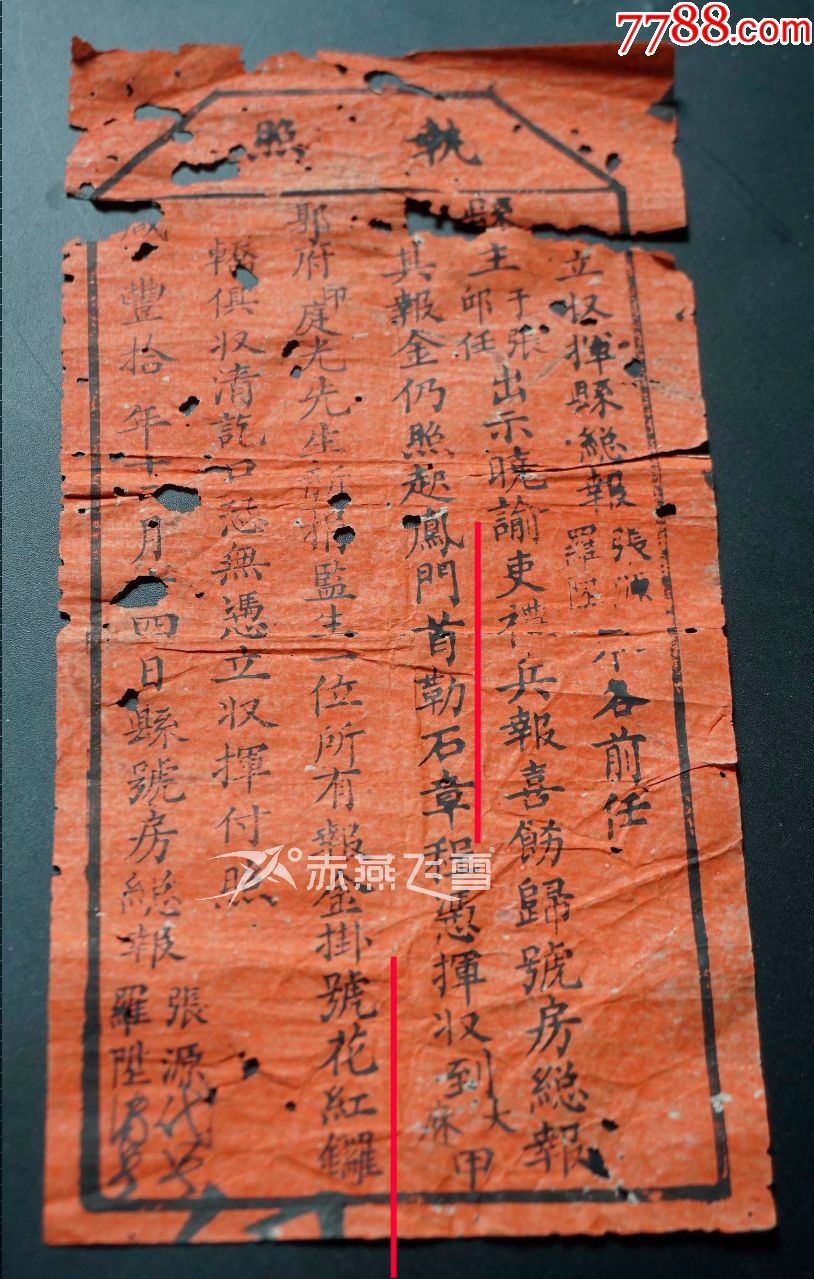 7788.com
執照
立収揮縣總報張源羅陞 各前任
縣主于張邱任出示曉諭吏禮兵報喜飭歸號房總報
其報金仍照起鳳門首勒石章程憑揮収到大麻甲
鄒府印庭光先生所捐監生一位所有報金掛號花紅鑼
轎俱収清訖口恐無憑立収揮付照
咸豐拾年十 月 四日縣號房總報張源代筆羅陞
赤燕飞雪